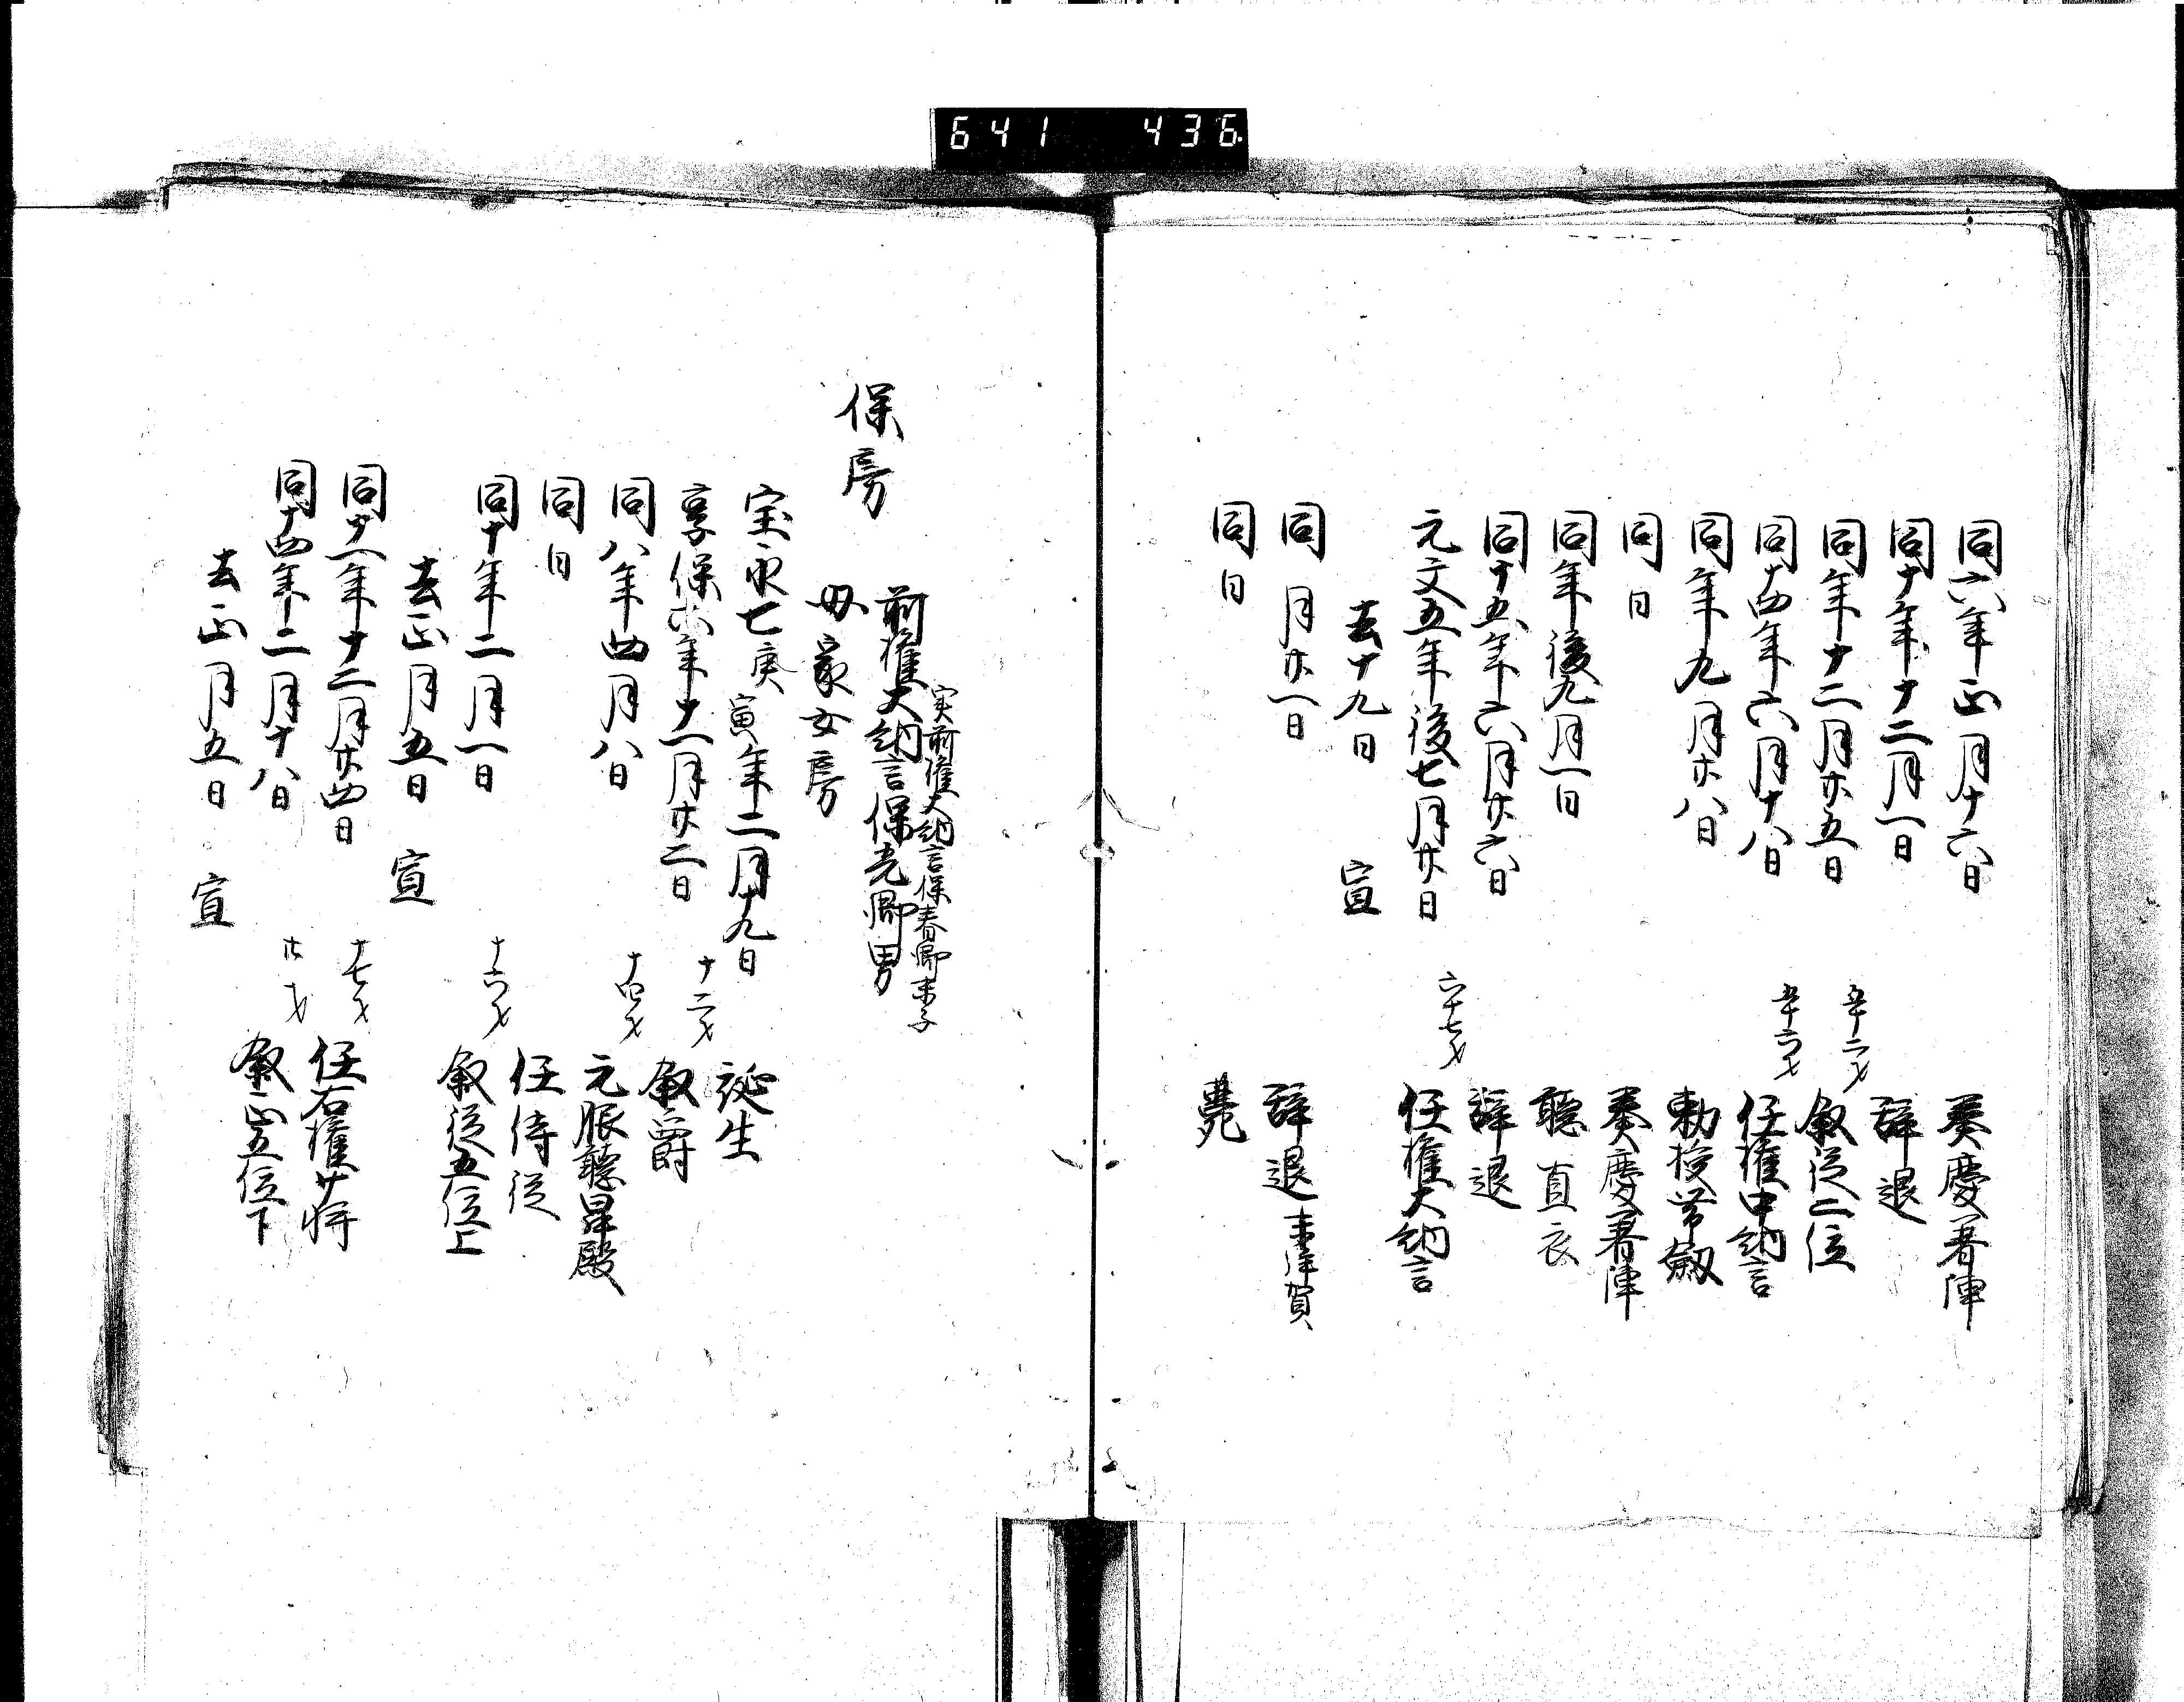 641 436
同六年正月十六日 奏慶著陣
同十年十二月一日 辞退
同年十二月廿五日 五十二才 叙従二位
同十四年六月十八日 五十六才 任権中納言
同年九月廿八日 勅授帯剱
同日 奏慶著陣
同年後九月一日 聴直衣
同十五年六月廿六日 辞退
元文五年後七月廿日 六十七才 任権大納言
去十九日 宣
同月廿一日 辞退 未拝賀
同日 薨
実前権大納言保春卿末子
前権大納言保光卿男
保房
母家女房
宝永七庚寅年二月十九日 誕生
享保六年十一月廿二日 十二才 叙爵
同八年四月八日 十四才 元服聴昇殿
同日 任侍従
同十年二月一日 十六才 叙従五位上
去正月五日 宣
同十一年十二月廿四日 十七才 任右権少将
同十四年二月十八日 廿才 叙正五位下
去正月五日 宣